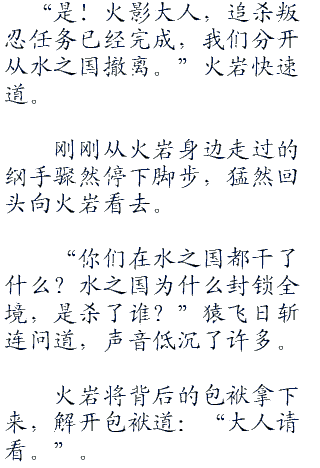 “是！火影大人，追杀叛
忍任务已经完成，我们分开
从水之国撤离。”火岩快速
道。
刚刚从火岩身边走过的
纲手骤然停下脚步，猛然回
头向火岩看去。
“你们在水之国都干了
什么？水之国为什么封锁全
境，是杀了谁？”猿飞日斩
连问道，声音低沉了许多。
火岩将背后的包袱拿下
来，解开包袱道：“大人请
看。”。